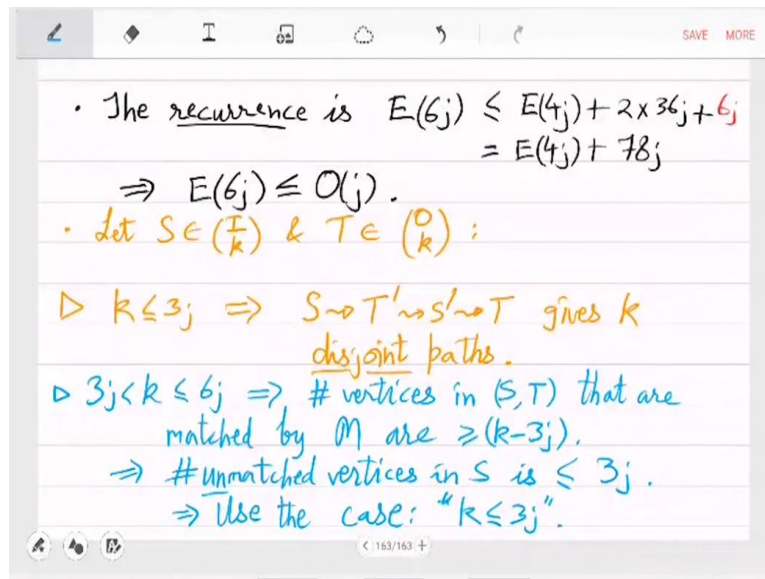 SAVE MORE
· The recurrence is E(6j) ≤ E(4j) + 2 x 36j + 6j
= E(4j) + 78j
⇒ E(6j) ≤ O(j).
· Let S ∈ (I k) & T ∈ (O k) :
▷ k ≤ 3j ⇒ S⇝T'⇝S'⇝T gives k
disjoint paths.
▷ 3j < k ≤ 6j ⇒ # vertices in (S,T) that are
matched by M are ≥ (k-3j).
⇒ #unmatched vertices in S is ≤ 3j.
⇒ Use the case: "k ≤ 3j".
< 163/163 +